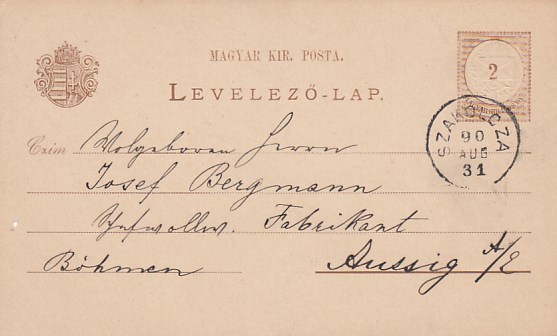 MAGYAR KIR. POSTA.
2
LEVELEZŐ-LAP.
SZAKOLCZA
90
AUG
31
Czim
Wolgeboren Herrn
Josef Bergmann
Fabrikant
Böhmen
Aussig A/E